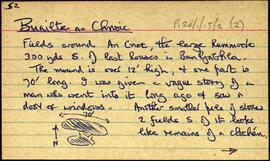 52
Builte an Chnoic P.20/1/5/2 (2)
Fields around An Cnoc, the large hummock
300 yds S. of last houses in
The mound is over 12' high, & one part is
70' long. I was given a vague story of a
man who went into it long ago & saw
doors & windows. Another smaller pile of stones
70' 2 fields S. of it looks
like remains of a clochán.
N